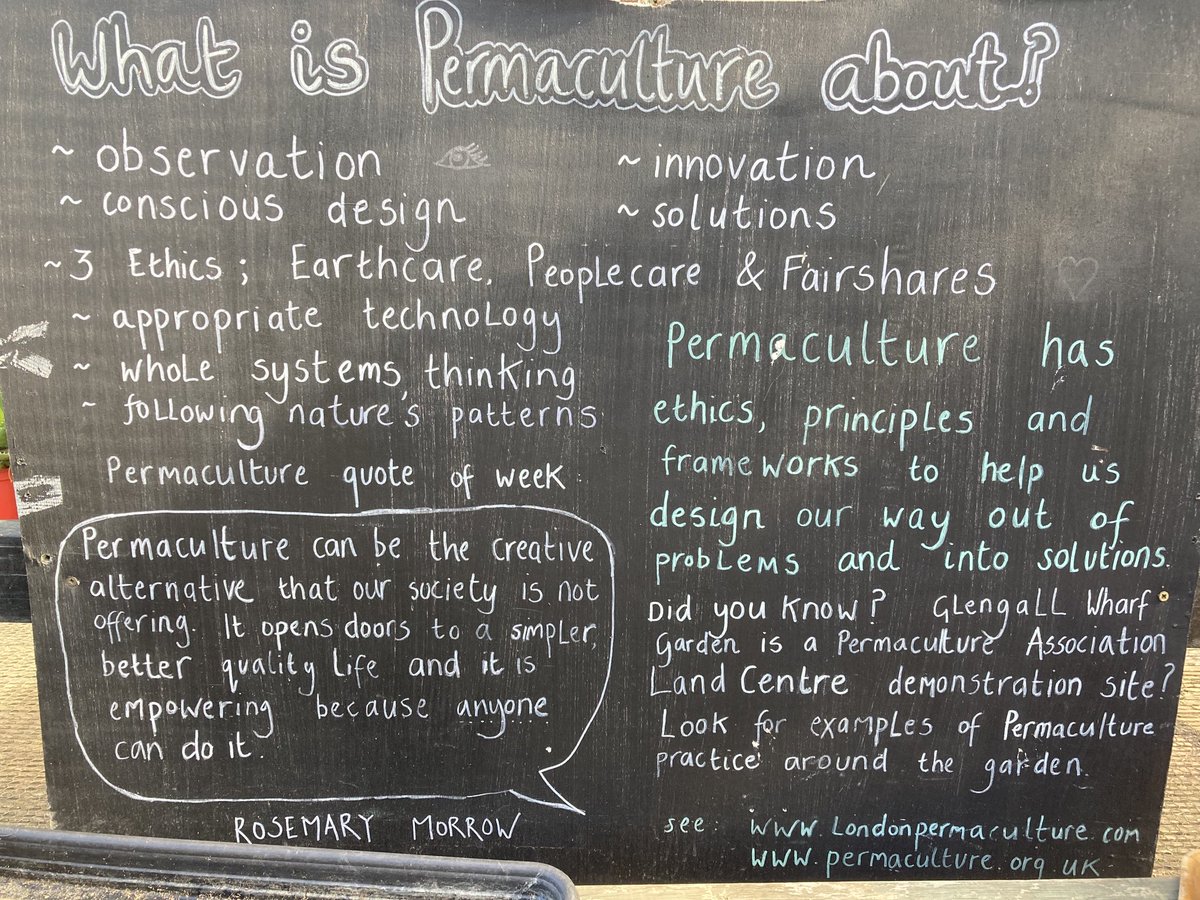 What is Permaculture about?
~ observation
~ conscious design
~ innovation
~ solutions
~ 3 Ethics; Earthcare, Peoplecare & Fairshares
~ appropriate technology
~ whole systems thinking
~ following nature's patterns
Permaculture quote of week:
Permaculture can be the creative
alternative that our society is not
offering. It opens doors to a simpler,
better quality life and it is
empowering because anyone
can do it.
ROSEMARY MORROW
Permaculture has
ethics, principles and
frameworks to help us
design our way out of
problems and into solutions.
Did you know? Glengall Wharf
Garden is a Permaculture Association
Land Centre demonstration site?
Look for examples of Permaculture
practice around the garden.
see: www.londonpermaculture.com
www.permaculture.org.uk